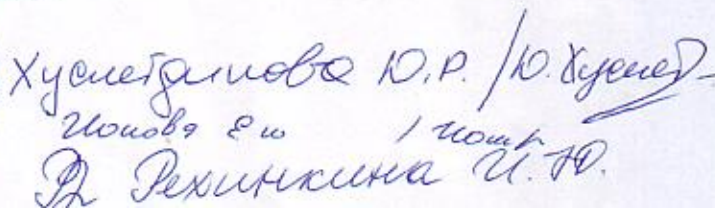 Хуснетдинова Ю.Р. / Ю. Хуснет
Ионова Е Ю /
Рехинкина И.Ю.